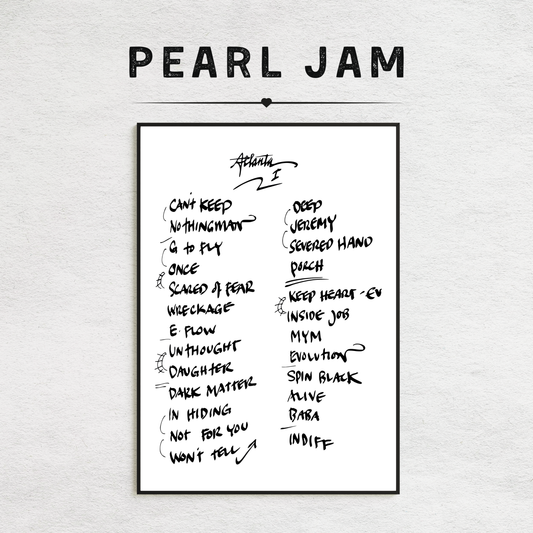 PEARL JAM
Atlanta
I
CAN'T KEEP
NOTHINGMAN
G TO FLY
ONCE
SCARED OF FEAR
WRECKAGE
E. FLOW
UNTHOUGHT
DAUGHTER
DARK MATTER
IN HIDING
NOT FOR YOU
WON'T TELL
DEEP
JEREMY
SEVERED HAND
PORCH
KEEP HEART - EV
INSIDE JOB
MYM
EVOLUTION
SPIN BLACK
ALIVE
BABA
INDIFF